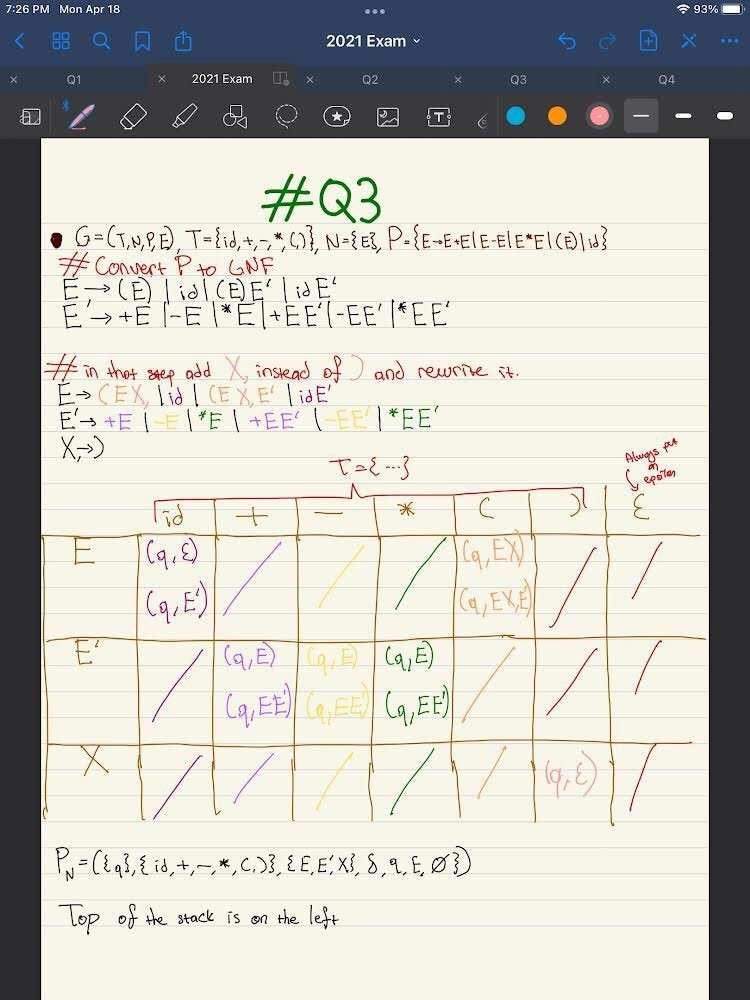 7:26 PM Mon Apr 18 93%
2021 Exam
Q1 2021 Exam Q2 Q3 Q4
T
#Q3
G=(T,N,P,E), T={id,+,-,*,(,)}, N={E}, P={E→E+E|E-E|E*E|(E)|id}
# Convert P to GNF
E→(E) | id | (E)E' | idE'
E'→+E |-E |*E |+EE' |-EE' |*EE'
# in that step add X, instead of ) and rewrite it.
E→ (EX, | id | (EX,E' | idE'
E'→ +E |-E |*E | +EE' |-EE' |*EE'
X,→)
T={...}
Always put
on
epsilon
id + - * ( ) Ɛ
E (q,Ɛ) (q,EX)
(q,E') (q,EX,E')
E' (q,E) (q,E) (q,E)
(q,EE') (q,EE') (q,EE')
X (q,Ɛ)
P_N=({q},{id,+,-,*,(,)},{E,E',X},δ,q,E,∅})
Top of the stack is on the left